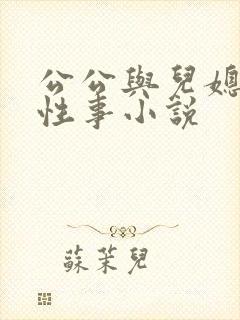 公公與兒媳
性事小説
蘇茉兒